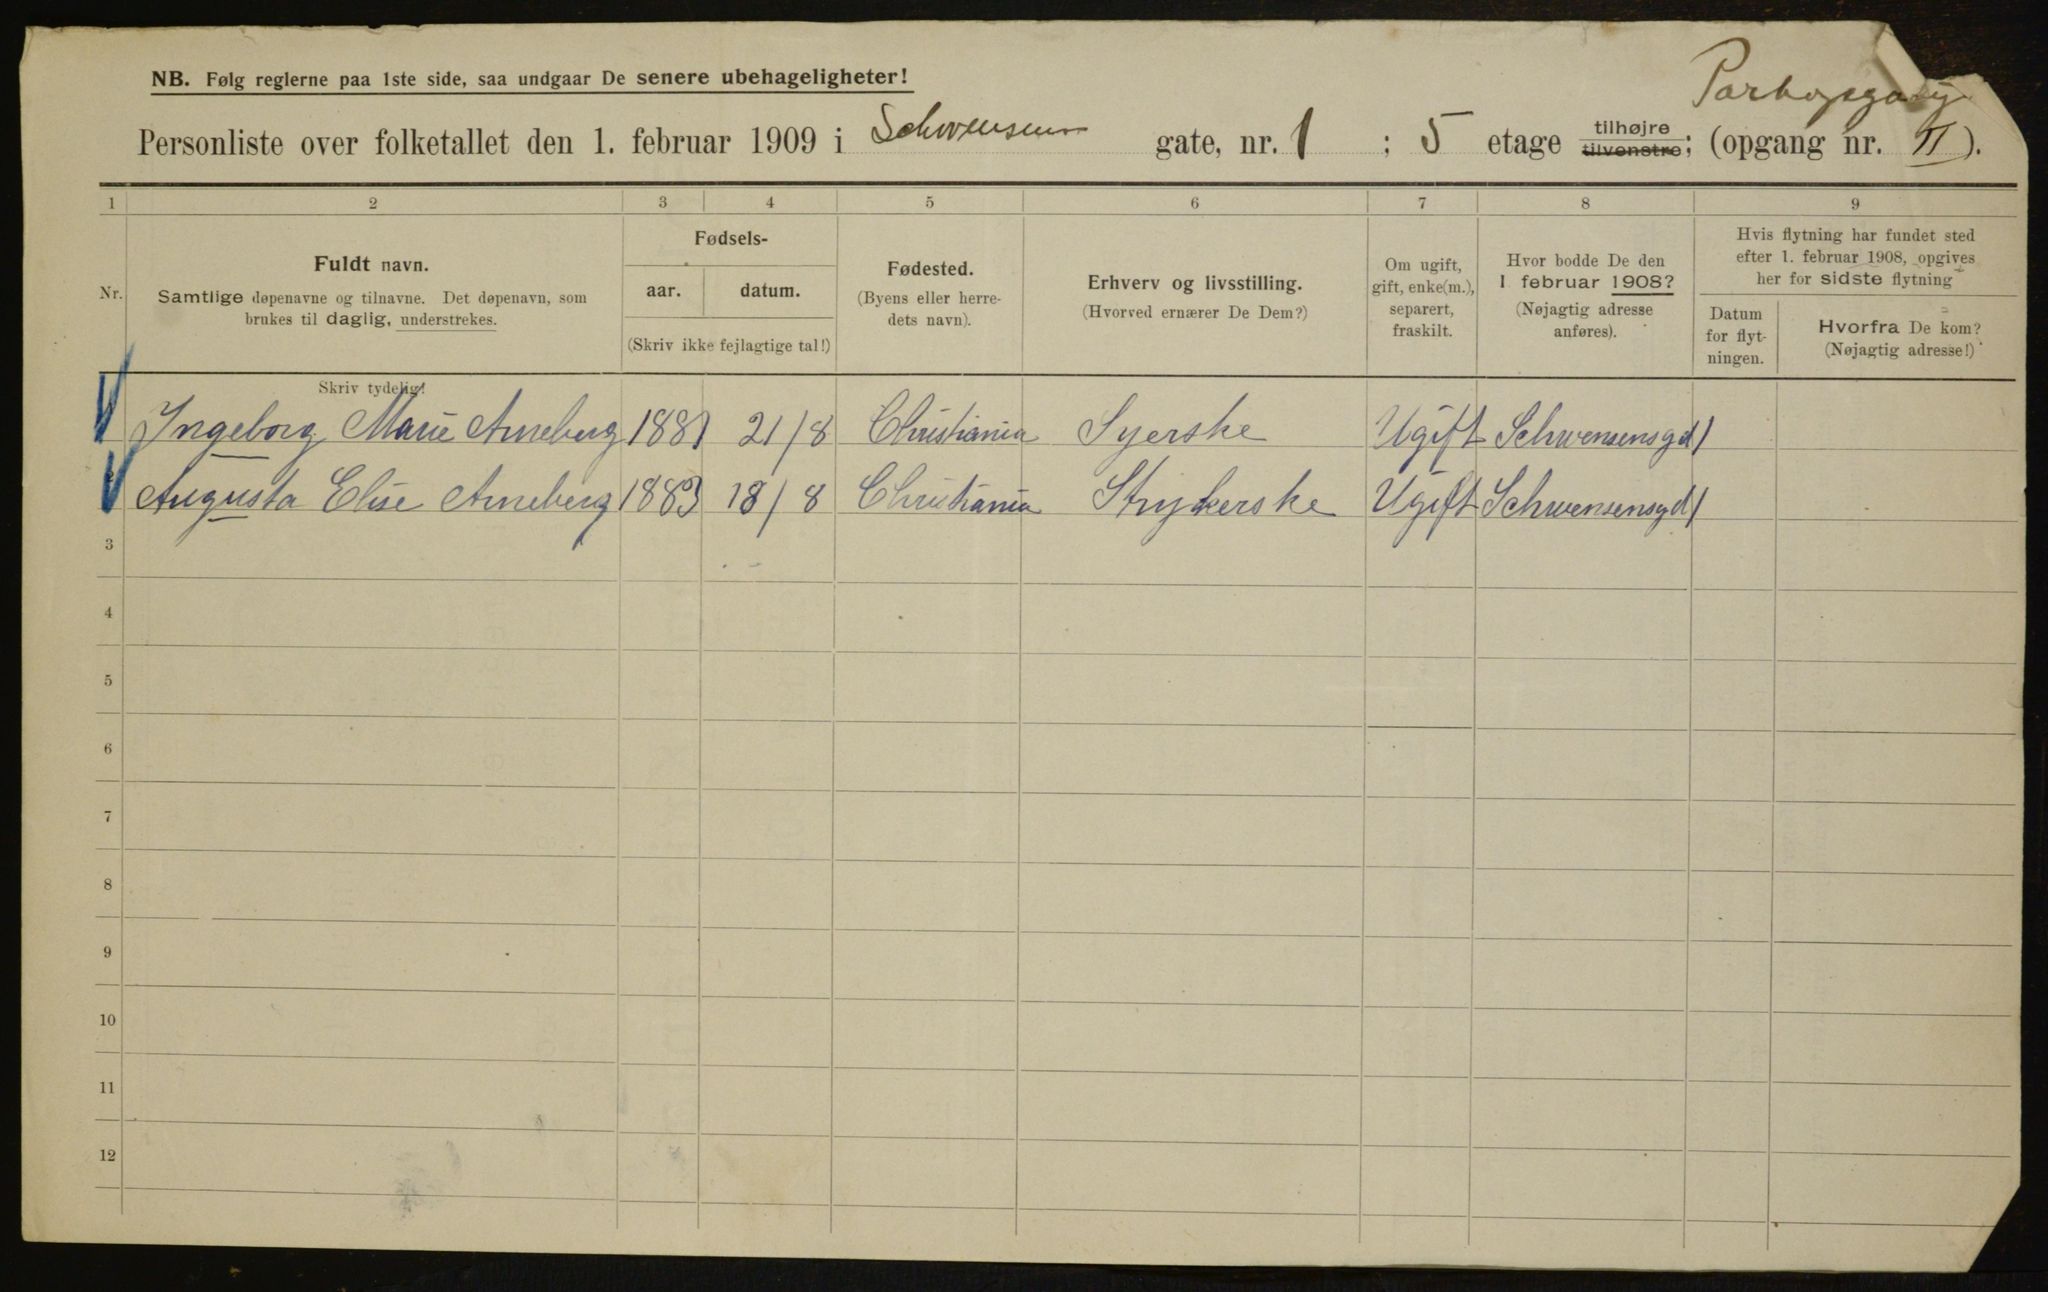 NB. Følg reglerne paa 1ste side, saa undgaar De senere ubehageligheter!
Personliste over folketallet den 1. februar 1909 i Schwensens gate, nr. 1 ; 5 etage tilhøjre tilvenstre; (opgang nr. II).
1 2 3 4 5 6 7 8 9
Nr.
Fuldt navn.
Samtlige døpenavne og tilnavne. Det døpenavn, som
brukes til daglig, understrekes.
Fødsels-
aar. datum.
(Skriv ikke fejlagtige tal!)
Fødested.
(Byens eller herre-
dets navn).
Erhverv og livsstilling.
(Hvorved ernærer De Dem?)
Om ugift,
gift, enke(m.),
separert,
fraskilt.
Hvor bodde De den
1 februar 1908?
(Nøjagtig adresse
anføres).
Hvis flytning har fundet sted
efter 1. februar 1908, opgives
her for sidste flytning
Datum
for flyt-
ningen.
Hvorfra De kom?
(Nøjagtig adresse!)
Skriv tydelig!
Ingeborg Marie Arneberg 1881 21/8 Christiania Syerske Ugift Schwensensgd 1
Augusta Elise Arneberg 1883 18/8 Christiania Strykerske Ugift Schwensensgd 1
3
4
5
6
7
8
9
10
11
12